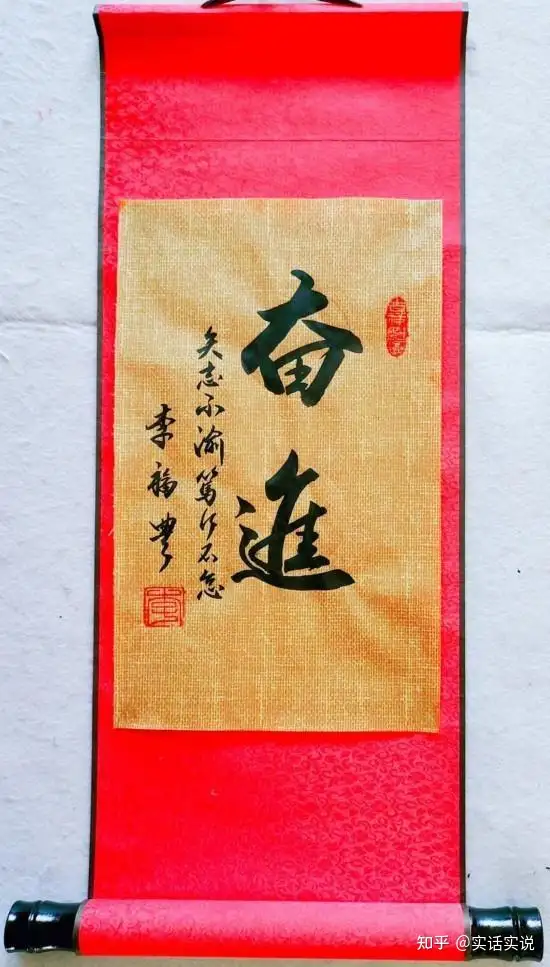 奋進
矢志不渝笃行不怠
李福
知乎 @实话实说